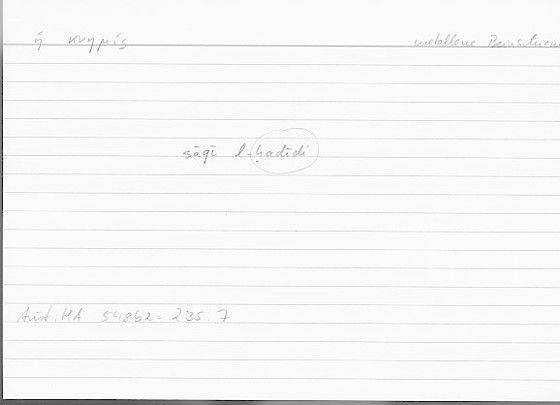 ἡ κνημίς metallene Beinschien
sāqī l-ḥadīdi
Arist. HA 548b2 = 235.7